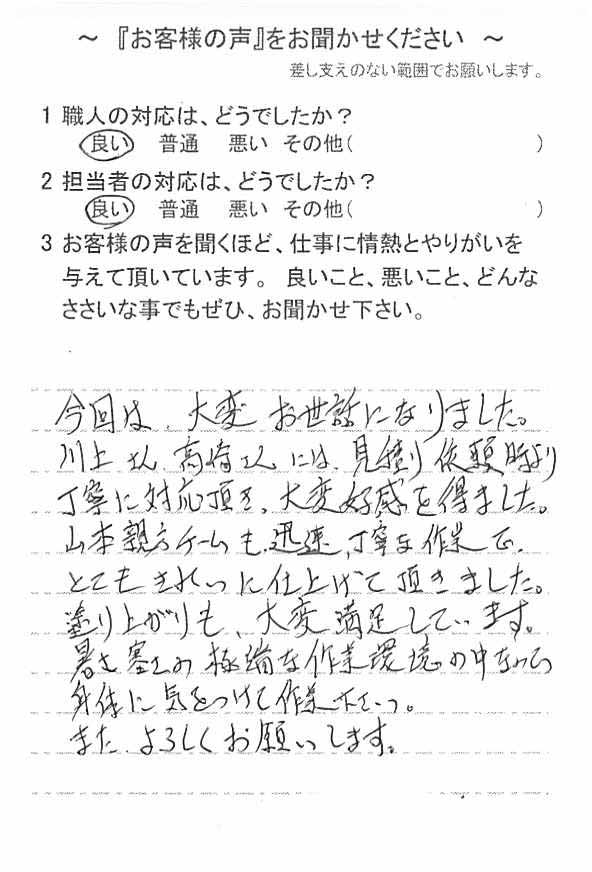 ～ 『お客様の声』をお聞かせください ～
差し支えのない範囲でお願いします。
1 職人の対応は、どうでしたか？
良い 普通 悪い その他( )
2 担当者の対応は、どうでしたか？
良い 普通 悪い その他( )
3 お客様の声を聞くほど、仕事に情熱とやりがいを
与えて頂いています。 良いこと、悪いこと、どんな
ささいな事でもぜひ、お聞かせ下さい。
今回は、大変お世話になりました。
川上さん、高崎さんには、見積り依頼時より
丁寧に対応頂き、大変好感を得ました。
山本親方チームも、迅速、丁寧な作業で、
とてもきれいに仕上げて頂きました。
塗り上がりも、大変満足しています。
暑さ寒さの極端な作業環境の中ながら
身体に気をつけて作業下さい。
また、よろしくお願いします。